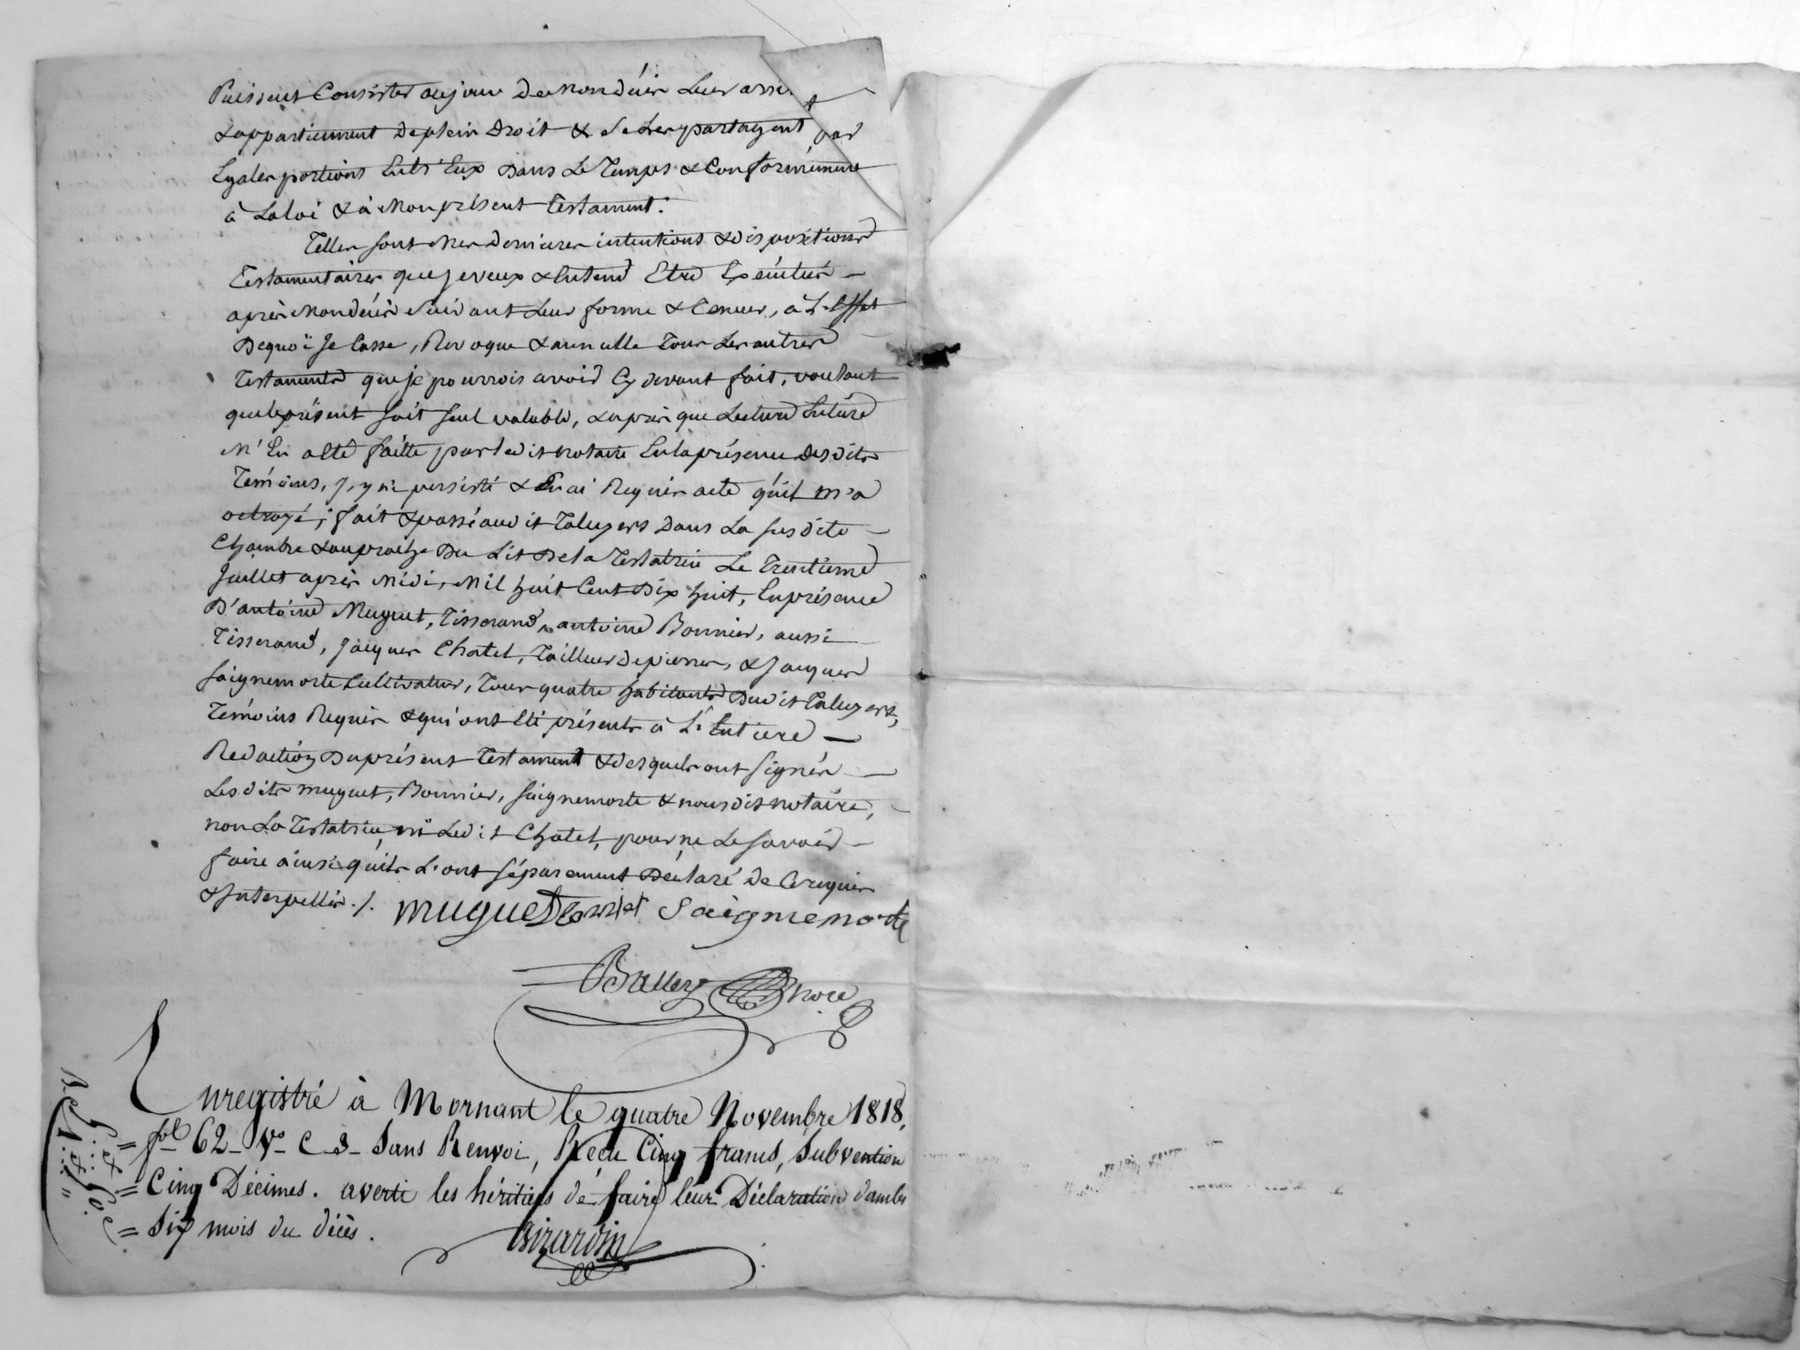 Puissent Consister au jour de mon décès Leur
& appartiennent de plein Droit & Se Les partagent par
Egales portions Entr'Eux Dans Le Temps & Conformément
à La loi & à Mon présent Testament.
Telles sont Mes dernieres intentions & dispositions
Testamentaires que je veux & Entend Etre Exécutées
après Mon décès suivant Leur forme & Teneur, à L'Effet
Dequoi Je Casse, Revoque & annulle Tous Les autres
Testaments que je pourrois avoir Cy devant fait, voulant
que le présent soit seul valable, & après que Lecture Entière
M'En a Eté faitte par ledit notaire En la présence desdits
Témoins, J'y ai persisté & En ai Requis acte qu'il m'a
octroyé; fait & passé audit Taluyers Dans La susdite
Chambre & au proche Du Lit De la Testatrice Le Trentieme
Juillet après Midi, Mil huit Cent Dix huit, En présence
D'antoine Muguet, Tisserand, antoine Bonnier, aussi
Tisserand, Jacques Chatel, Tailleur de pierres, & Jacques
Saignemorte Cultivateur, Tous quatre habitants Dudit Taluyers,
Témoins Requis & qui ont Eté présents à L'Entiere
Redaction Du présent Testament & desquels ont signés
Lesdits muguet, Bonnier, Saignemorte & nousdit notaire,
non La Testatrice, ni Ledit Chatel, pour ne Le savoir
faire ainsi qu'ils L'ont séparement Déclaré de Ce requis
& Interpellés ./.
muguet Saignemorte
nore
Enregistré à Mornant le quatre Novembre 1818,
fol 62 Vo C 3 Sans Renvoi, Reçu Cinq francs, Subvention
Cinq Décimes. averti les héritiers de faire leur Déclaration dans les
Six mois du décès.
Girardin